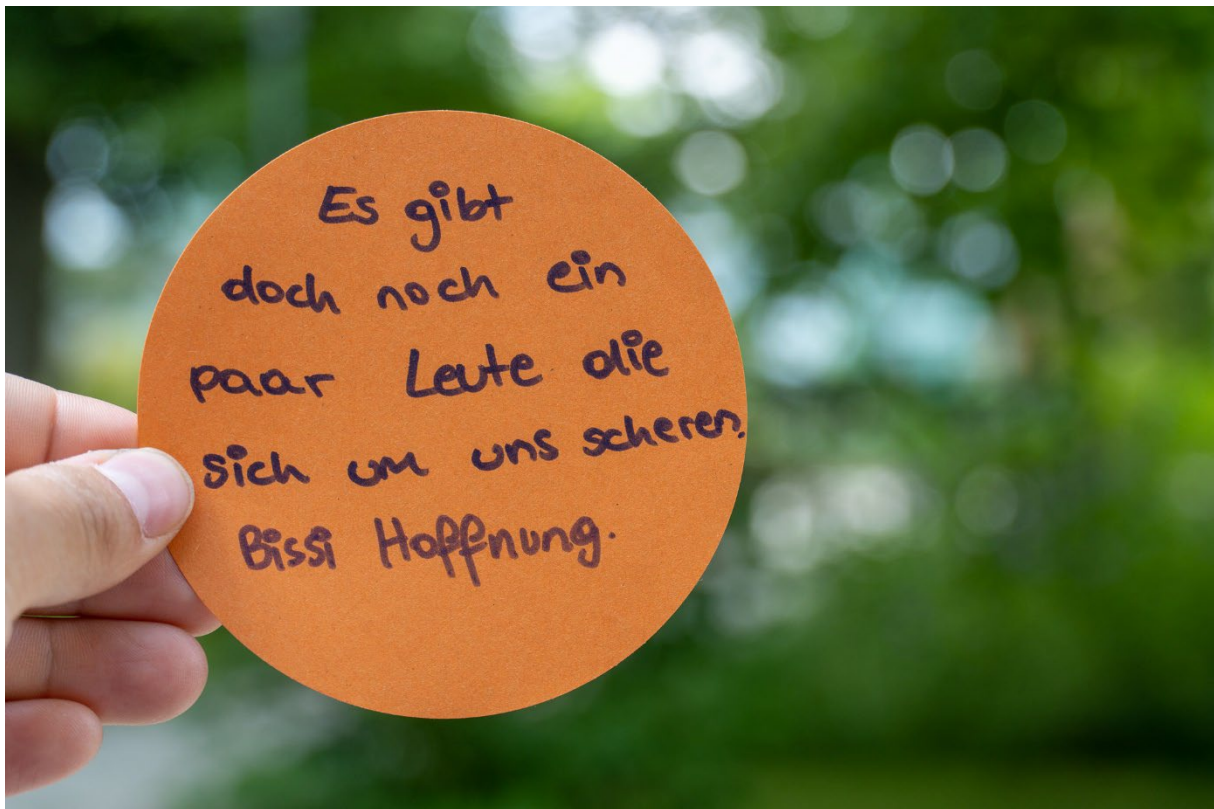 Es gibt
doch noch ein
paar Leute die
sich um uns scheren.
Bissi Hoffnung.